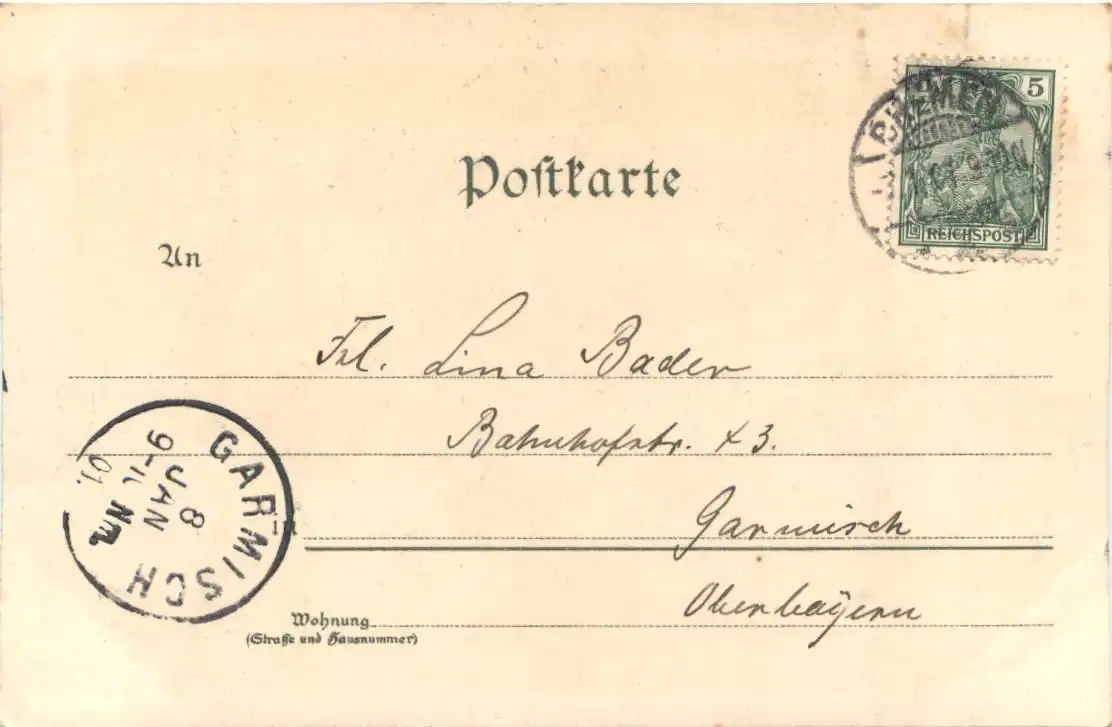 5
BREMEN
REICHSPOST
Postkarte
An
Frl. Lina Bader
Bahnhofstr. 43.
in Garmisch
Oberbayern
GARMISCH
8 JAN 01.
9-11 Nm.
Wohnung
(Straße und Hausnummer)